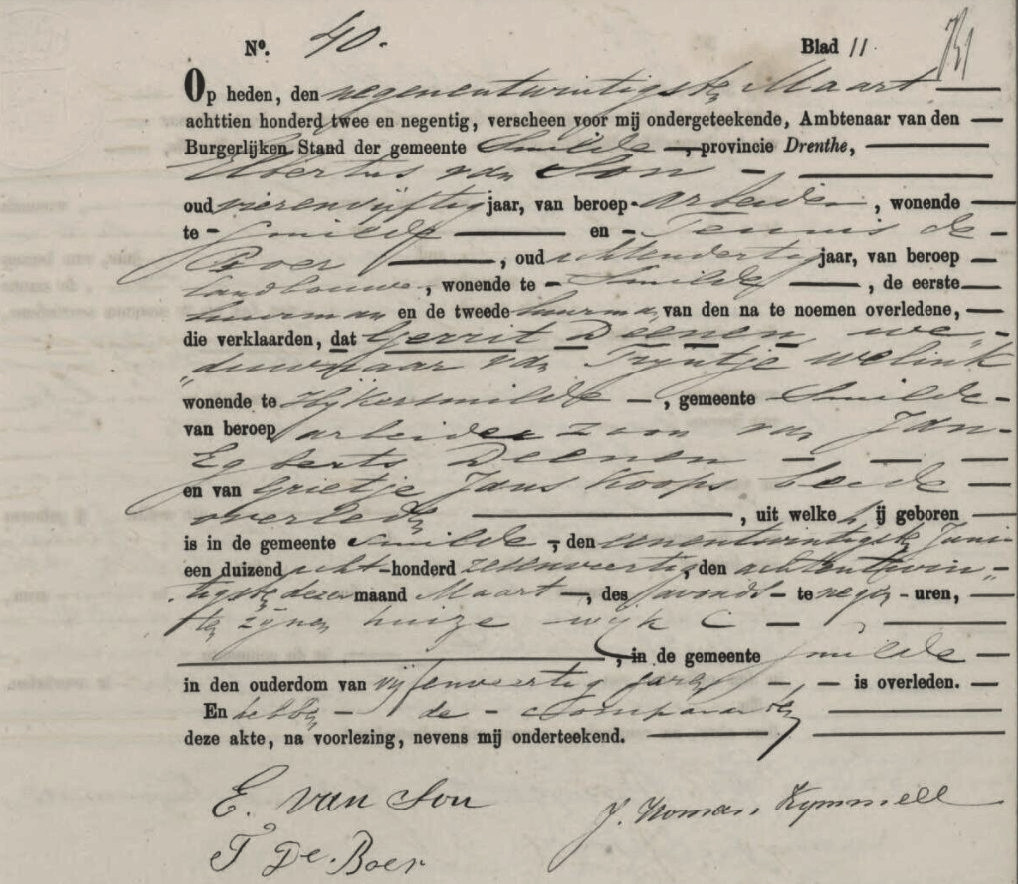 No. 40. Blad 11
Op heden, den negenentwintigsten Maart
achttien honderd twee en negentig, verscheen voor mij ondergeteekende, Ambtenaar van den
Burgerlijken Stand der gemeente Smilde, provincie Drenthe,
Elbertus van Son
oud vierenvijftig jaar, van beroep arbeider, wonende
te Smilde en Teunis de
Boer, oud achtendertig jaar, van beroep
landbouwer, wonende te Smilde, de eerste
buurman en de tweede buurman van den na te noemen overledene,
die verklaarden, dat Gerrit Deenen, we-
duwnaar van Tryntje Welink
wonende te Hijkersmilde, gemeente Smilde
van beroep arbeider zoon van Jan
Egberts Deenen
en van Grietje Jans Koops beide
overleden, uit welke hij geboren
is in de gemeente Smilde, den eenentwintigsten Juni
een duizend acht honderd zesenveertig, den achtentwin-
tigsten dezer maand Maart, des avonds te negen uren,
ten zijnen huize wijk C
, in de gemeente Smilde
in den ouderdom van vijfenveertig jaren, is overleden.
En hebben de Comparanten
deze akte, na voorlezing, nevens mij onderteekend.
E. van Son
J. Homan. Kymmell
T De. Boer